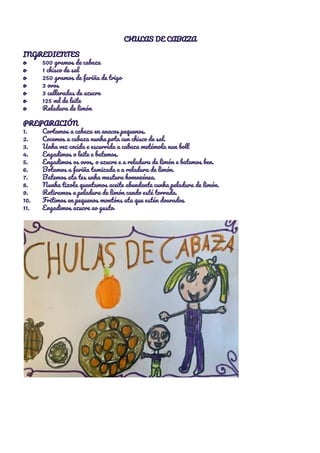 CHULAS DE CABAZA
INGREDIENTES
500 gramos de cabaza
1 chisco de sal
250 gramos de fariña de trigo
3 ovos
3 culleradas de azucre
125 ml de leite
Reladura de limón
PREPARACIÓN
1. Cortamos a cabaza en anacos pequenos.
2. Cocemos a cabaza nunha pota cun chisco de sal.
3. Unha vez cocida e escurrida a cabaza metémola nun boll
4. Engadimos o leite e batemos.
5. Engadimos os ovos, o azucre e a reladura de limón e batemos ben.
6. Botamos a fariña tamizada e a reladura de limón.
7. Batemos ata ter unha mestura homoxénea.
8. Nunha tixola quentamos aceite abundante cunha peladura de limón.
9. Retiramos a peladura de limón cando esté torrada.
10. Fritimos en pequenos montóns ata que estén dourados
11. Engadimos azucre ao gusto.
CHULAS DE CABAZA